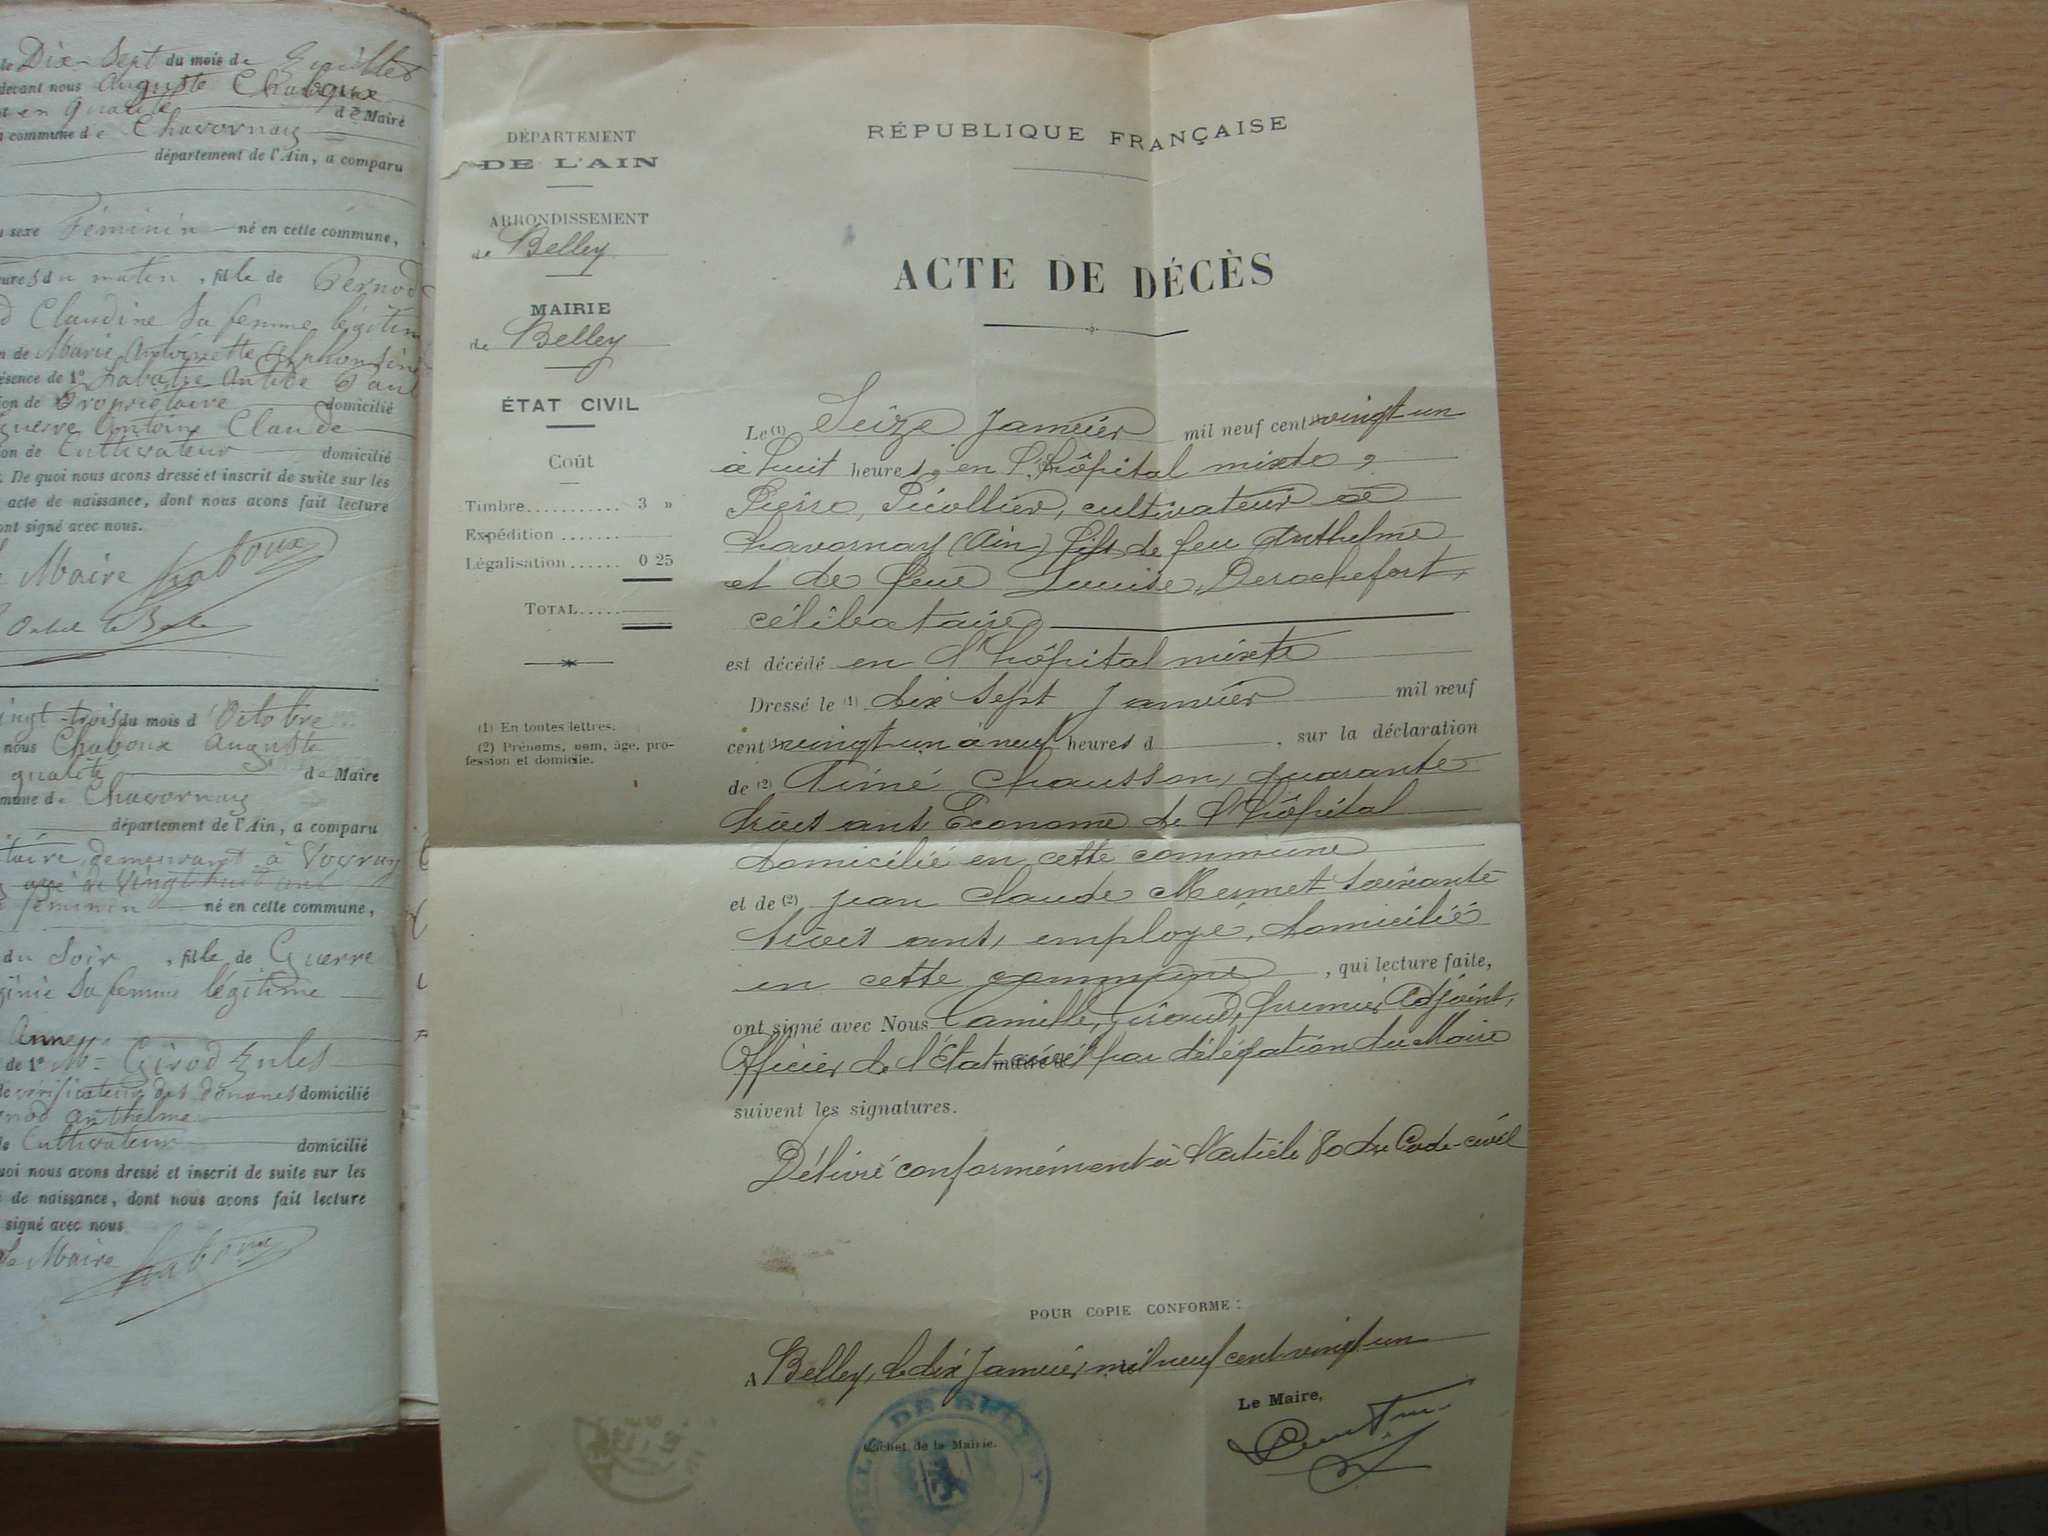 le Dix-Sept du mois de Juillet
devant nous Auguste Chaboux
en qualité de Maire
commune de Chavornay
département de l'Ain, a comparu
sexe Féminin né en cette commune,
heures du matin, fille de Pernod
Claudine sa femme légitime
de Marie Antoinette Alphonsine
présence de 1°
Propriétaire domicilié
Guerre Antoine Claude
Cultivateur domicilié
De quoi nous avons dressé et inscrit de suite sur les
acte de naissance, dont nous avons fait lecture
ont signé avec nous.
Le Maire Chaboux
vingt-trois du mois d'Octobre
nous Chaboux Auguste
qualité de Maire
commune de Chavornay
département de l'Ain, a comparu
demeurant à Vovray
âgé de vingt huit ans
féminin né en cette commune,
du Soir, fille de Guerre
sa femme légitime
Anne
de 1° Mr Girod Jules
vérificateur des douanes domicilié
Anthelme
Cultivateur domicilié
quoi nous avons dressé et inscrit de suite sur les
de naissance, dont nous avons fait lecture
signé avec nous
Le Maire Chaboux
DÉPARTEMENT
DE L'AIN
ARRONDISSEMENT
de Belley
MAIRIE
de Belley
ÉTAT CIVIL
Coût
Timbre........... 3 »
Expédition .......
Légalisation...... 0 25
TOTAL.....
(1) En toutes lettres.
(2) Prénoms, nom, âge, pro-
fession et domicile.
RÉPUBLIQUE FRANÇAISE
ACTE DE DÉCÈS
Le (1) Seize Janvier mil neuf cent vingt un
à huit heures, en l'hôpital mixte,
Pierre, Picollier, cultivateur à
Chavornay (Ain) fils de feu Anthelme
et de feue Louise, Derochefort,
célibataire
est décédé en l'hôpital mixte
Dressé le (1) dix sept Janvier mil neuf
cent vingt un à neuf heures d , sur la déclaration
de (2) Aimé Chausson, quarante
trois ans, Econome de l'hôpital
domicilié en cette commune
et de (2) Jean Claude Mermet soixante
trois ans, employé, domicilié
en cette commune , qui lecture faite,
ont signé avec Nous Camille, Giroud, premier Adjoint,
Officier de l'État civil par délégation du Maire
suivent les signatures.
Délivré conformément à l'article 80 du Code civil
POUR COPIE CONFORME :
A Belley, le dix Janvier mil neuf cent vingt un
Le Maire,
Cachet de la Mairie.
VILLE DE BELLEY